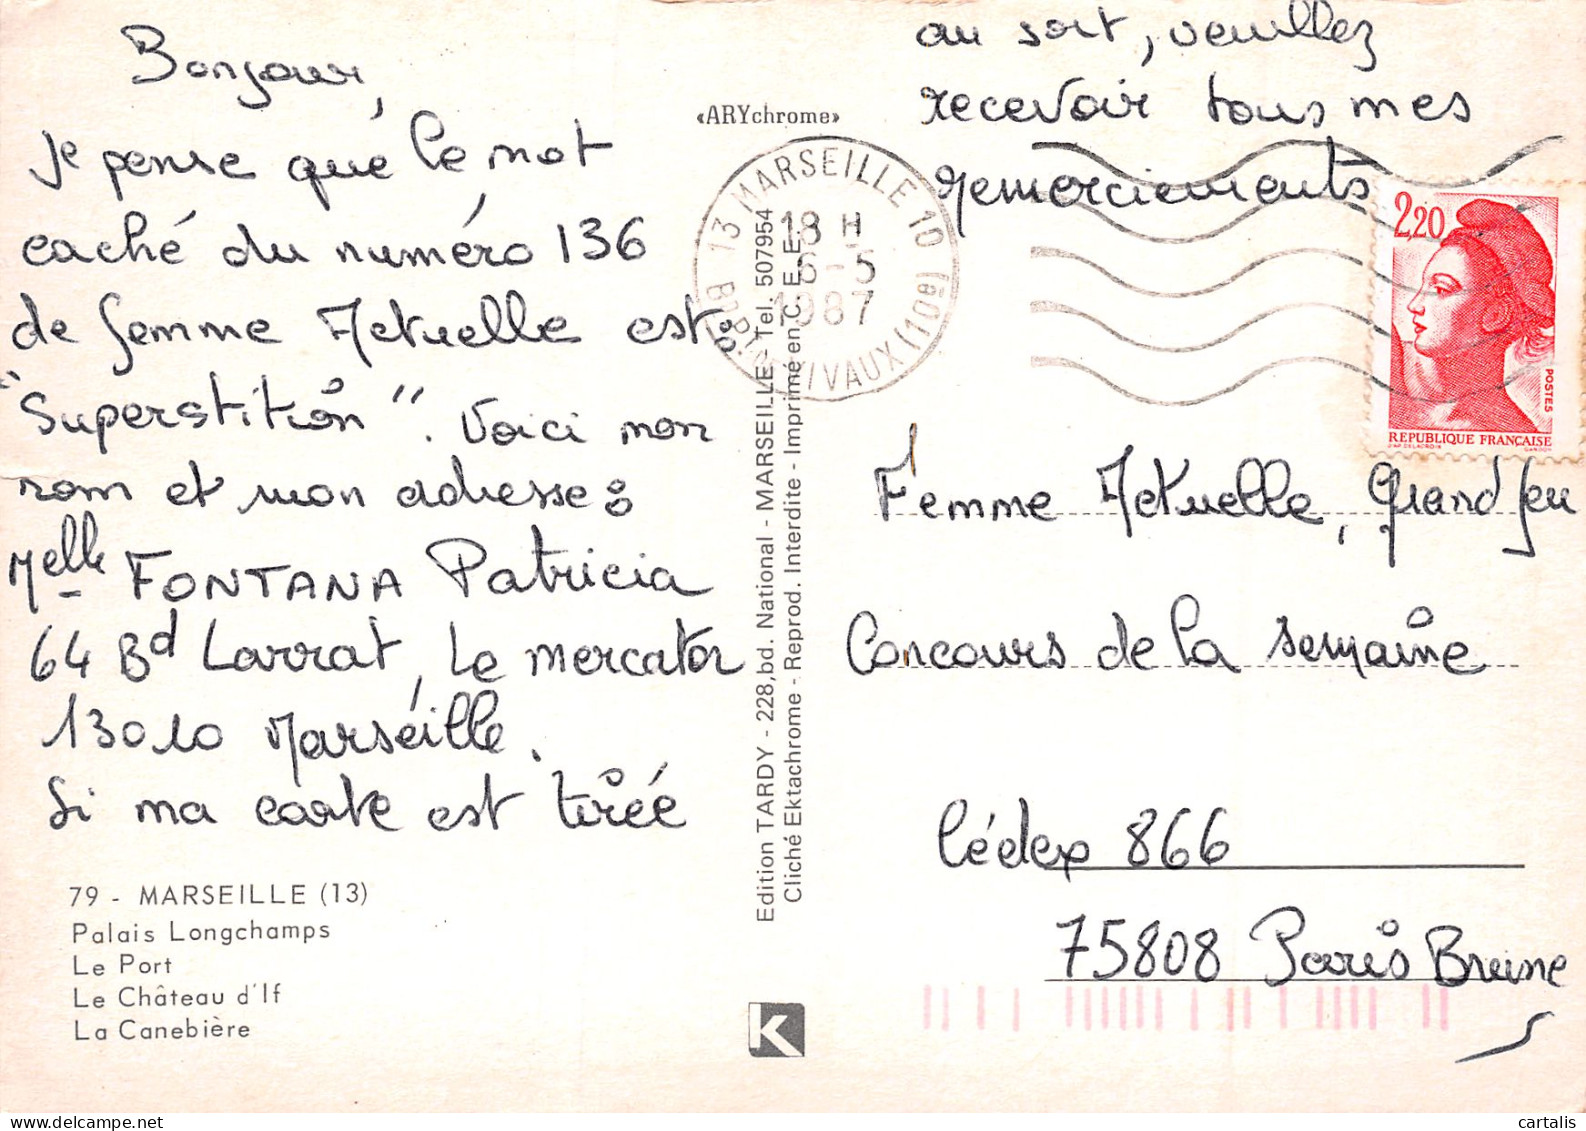 Bonjour,
Je pense que le mot
caché du numéro 136
de femme Actuelle est :
"Superstition". Voici mon
nom et mon adresse :
Melle FONTANA Patricia
64 Bd Larrat, Le mercator
13010 Marseille.
Si ma carte est tirée
au sort, veuillez
recevoir tous mes
remerciements
«ARYchrome»
13 MARSEILLE 10 (10e)
18 H
6-5
1987
2,20
POSTES
REPUBLIQUE FRANÇAISE
D'AP. DELACROIX GANDON
Femme Actuelle, Grand Jeu
Concours de la semaine
Cédex 866
75808 Paris Brune
79 - MARSEILLE (13)
Palais Longchamps
Le Port
Le Château d'If
La Canebière
Edition TARDY - 228, bd. National - MARSEILLE - Tel. 507954
Cliché Ektachrome - Reprod. Interdite - Imprimé en C. E. E.
K
cartalis